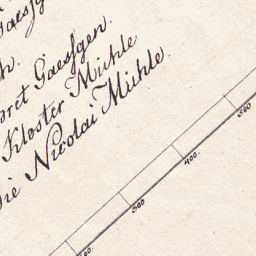 Gaesg
h.
oret Gaessgen.
Kloster Mühle
ie Nicolai Mühle.
300
400.
500